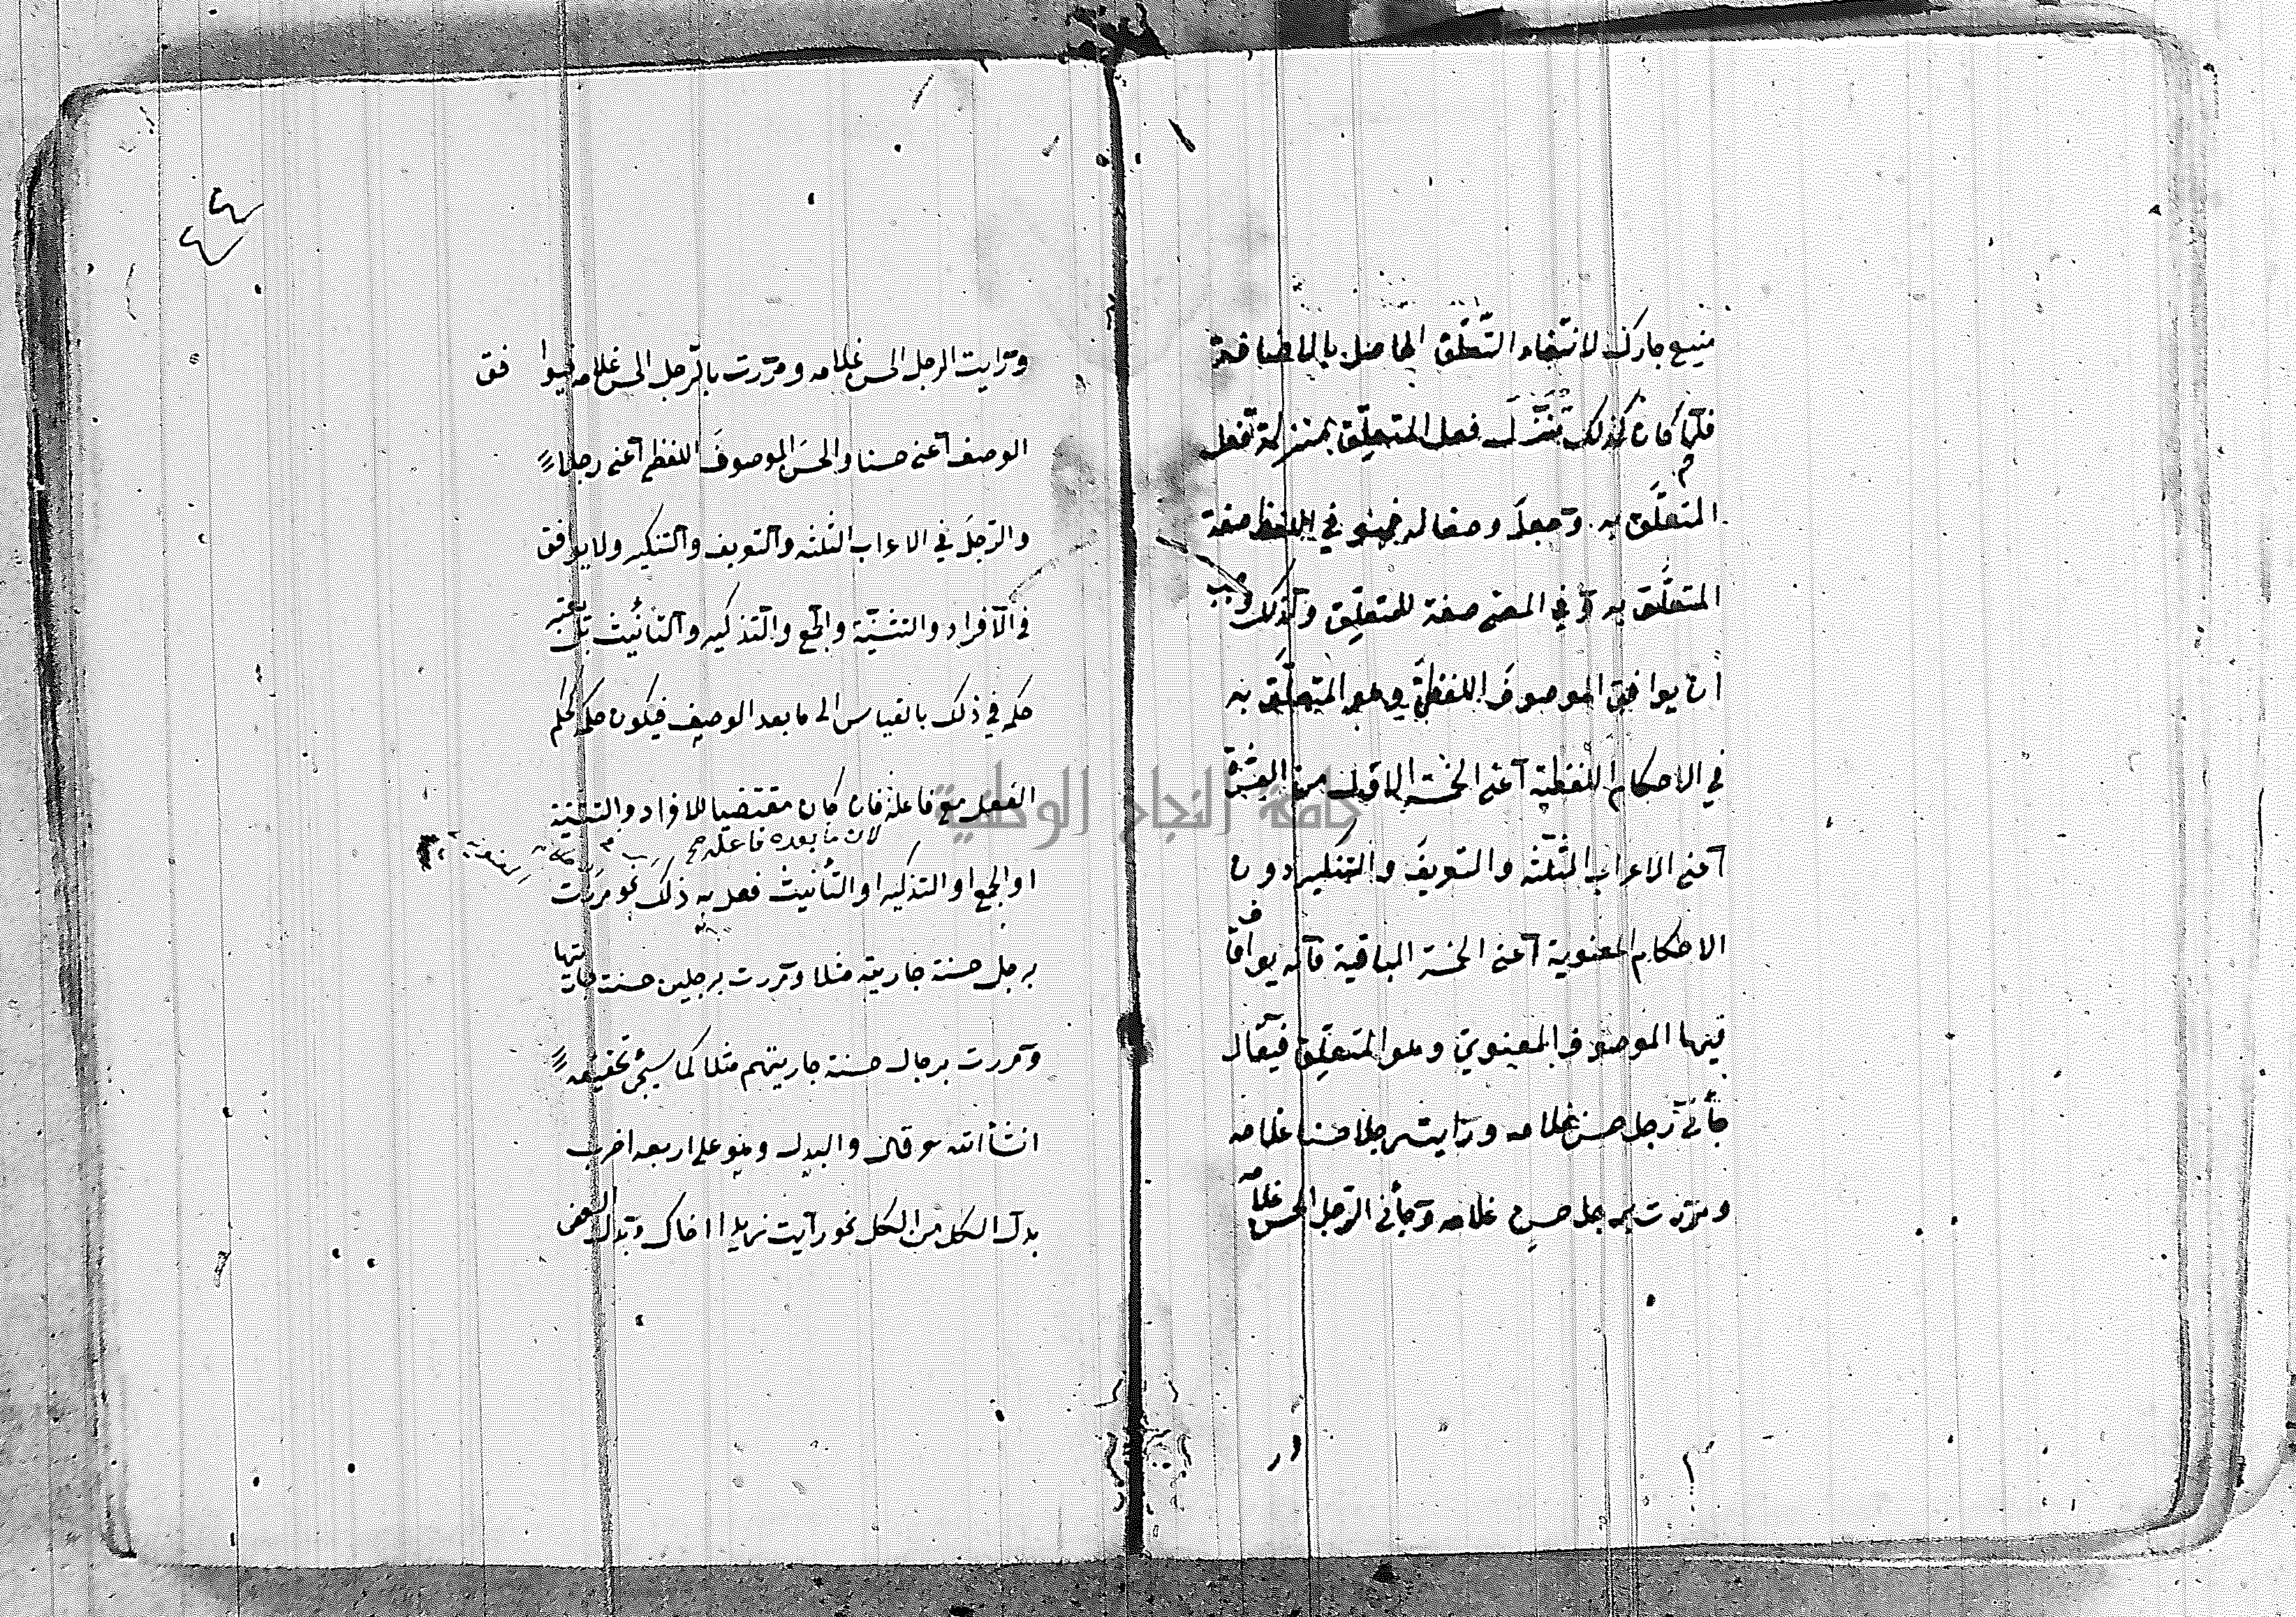 منيع جارك لانتفاء التعلّق الحاصل بالاضافة
فلمّا كان كذلك تنزّل فعل المتعلّق بمنزلة فعل
المتعلّق به وجعل وصفا له فهو في اللفظ صفة
المتعلّق به وفي المعنى صفة للمتعلّق وكذلك وجب
ان يوافق الموصوف اللفظيّ وهو المتعلّق به
في الاحكام اللفظية اعني الخمسة الاول من العشرة
اعني الاعراب الثلثة والتعريف والتنكير دون
الاحكام المعنوية اعني الخمسة الباقية فانه يوافق
فيها الموصوف المعنويّ وهو المتعلّق فيقال
جاءني رجل حسن غلامه ورايت رجلا حسنا غلامه
ومررت برجل حسن غلامه وجاءني الرّجل الحسن غلامه
ورايت الرجل الحسن غلامه ومررت بالرّجل الحسن غلامه فيوا فق
الوصف اعني حسنا والحسن الموصوف اللفظي اعني رجلا
والرّجل في الاعراب الثلثة والتعريف والتنكير ولا يوافق
في الافراد والتثنية والجمع والتذكير والتانيث بل يعتبر
حكمه في ذلك بالقياس الى ما بعد الوصف فيكون حكمه كحكم
الفعل مع فاعله فان كان مقتضيا للافراد والتثنية
لان ما بعده فاعله
او الجمع او التذكير او التأنيث فعل به ذلك نحو مررت
برجل حسنة جاريته مثلا ومررت برجلين حسنة جاريتهما
ومررت برجال حسنة جاريتهم مثلا كما سيجئ تحقيقه
انشأ الله قال والبدل وهو على اربعة اضرب
بدل الكل من الكل نحو رايت زيدا اخاك وبدل البعض
جامعة النجاح الوطنية